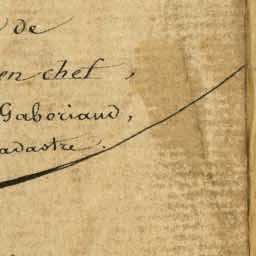 de
en chef,
Gaboriaud,
adastre.